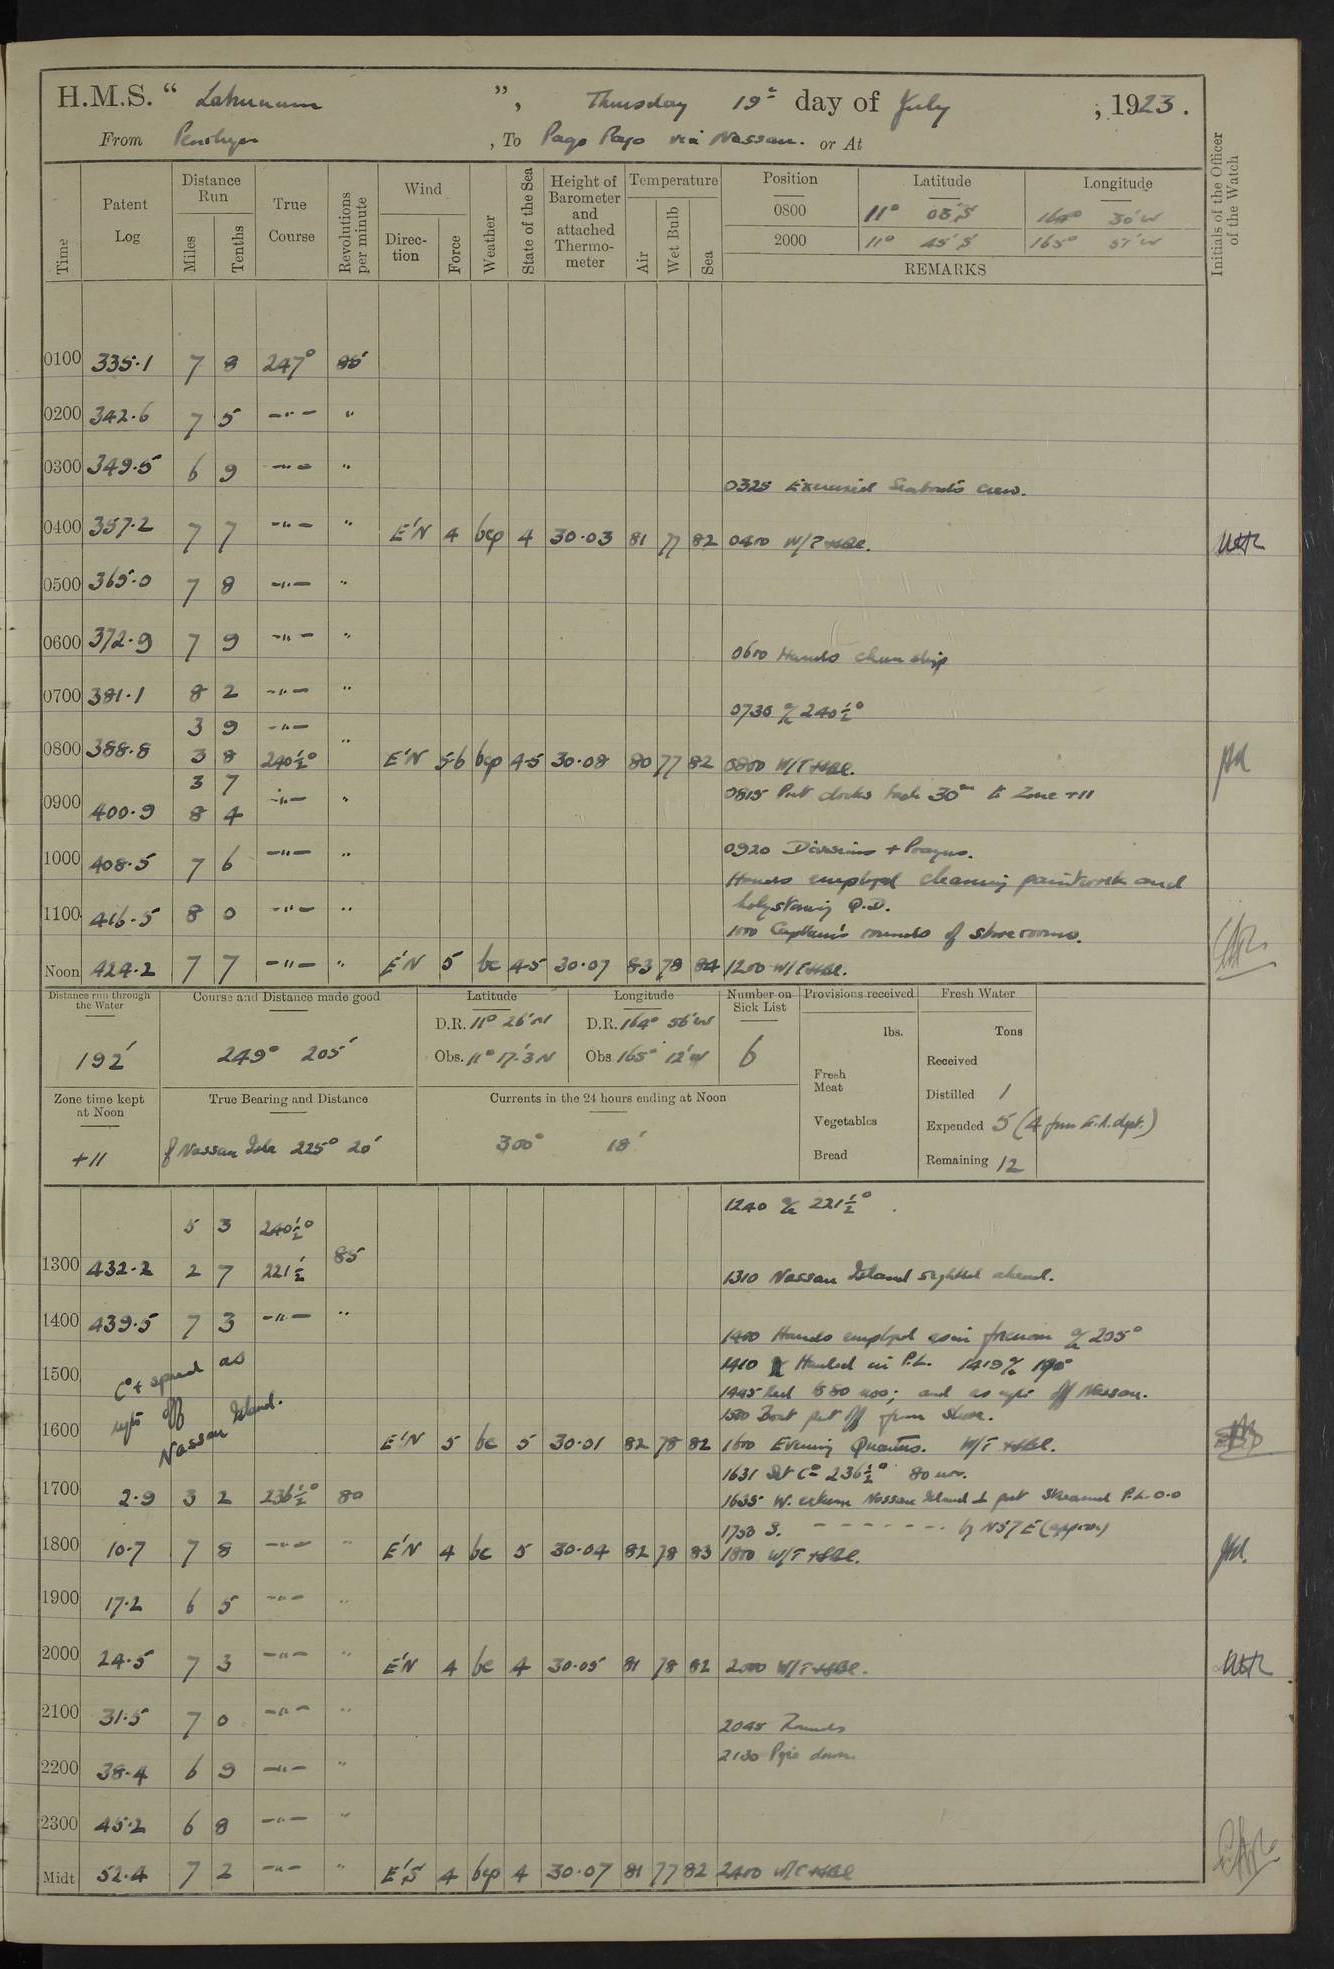 H.M.S. " Laburnum ", Thursday 19th day of July, 1923.
From Penrhyn, To Pago Pago via Nassau. or At
Time Patent Log Distance Run Miles Tenths True Course Revolutions per minute Wind Direction Force Weather State of the Sea Height of Barometer and attached Thermometer Temperature Air Wet Bulb Sea Position Latitude Longitude Initials of the Officer of the Watch
0800 11° 03' S 164° 30' W
2000 11° 45' S 165° 57' W
REMARKS
0100 335.1 7 8 247° 85
0200 342.6 7 5 —"— "
0300 349.5 6 9 —"— "
0325 Exercised Seaboat's crew.
0400 357.2 7 7 —"— " E'N 4 bcp 4 30.03 81 77 82 0400 W/T
0500 365.0 7 8 —"— "
0600 372.9 7 9 —"— "
0600 Hands clean ship
0700 381.1 8 2 —"— "
0730 a/c 240½°
3 9 —"—
0800 388.8 3 8 240½° " E'N 5-6 bcp 4-5 30.08 80 77 82 0800 W/T
3 7
0815 Put clocks back 30m to Zone +11
0900 400.9 8 4 —"— "
0920 Divisions + Prayers.
1000 408.5 7 6 —"— "
Hands employed cleaning paintwork and
holystoning Q.D.
1100 416.5 8 0 —"— "
1100 Captain's rounds of storerooms.
Noon 424.2 7 7 —"— " E'N 5 bc 4-5 30.07 83 78 84 1200 W/T
Distance run through the Water Course and Distance made good Latitude Longitude Number on Sick List Provisions received Fresh Water
D.R. 11° 26' N D.R. 164° 56' W lbs. Tons
192' 249° 205' Obs. 11° 17.3 N Obs. 165° 12' W 6 Received
Fresh Meat
Distilled 1
Zone time kept at Noon True Bearing and Distance Currents in the 24 hours ending at Noon
Vegetables Expended 5 (4 from E.R. dept.)
+11 of Nassau Isle 225° 20' 300° 18' Bread Remaining 12
1240 a/c 221½°
5 3 240½°
85
1300 432.2 2 7 221½
1310 Nassau Island sighted ahead.
1400 439.5 7 3 —"— "
1400 Hands employed as in forenoon a/c 205°
1410 Hauled in P.L. 1419 a/c 190°
1500 Co + speed as
1445 Red to 50 revs; and as req'te off Nassau.
req'te off
1500 Boat put off from shore.
1600 Nassau Island. E'N 5 bc 5 30.01 82 78 82 1600 Evening Quarters. W/T
1631 Set Co 236½° 80 revs.
1700 2.9 3 2 236½° 80
1635 W. extreme Nassau Island put Streamed P.L. 0.0
S. - - - - - - - N57E (approx)
1800 10.7 7 8 —"— " E'N 4 bc 5 30.04 82 78 83 1800 W/T
1900 17.2 6 5 —"— "
2000 24.5 7 3 —"— " E'N 4 bc 4 30.05 81 78 82 2000 W/T
2100 31.5 7 0 —"— "
2045 Rounds
2130 Pipe down
2200 38.4 6 9 —"— "
2300 45.2 6 8 —"— "
Midt 52.4 7 2 —"— " E'S 4 bcp 4 30.07 81 77 82 2400 W/T